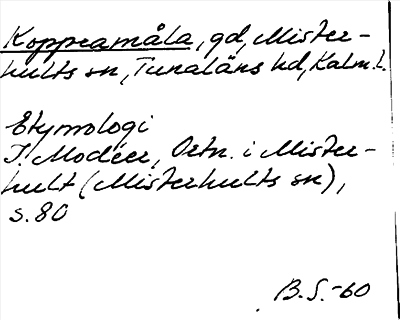 Koppramåla, gd, Mister-
hults sn, Tunaläns hd, Kalm. l.
Etymologi
I. Modéer, Ortn. i Mister-
hult (Misterhults sn),
s. 80
B.S. -60